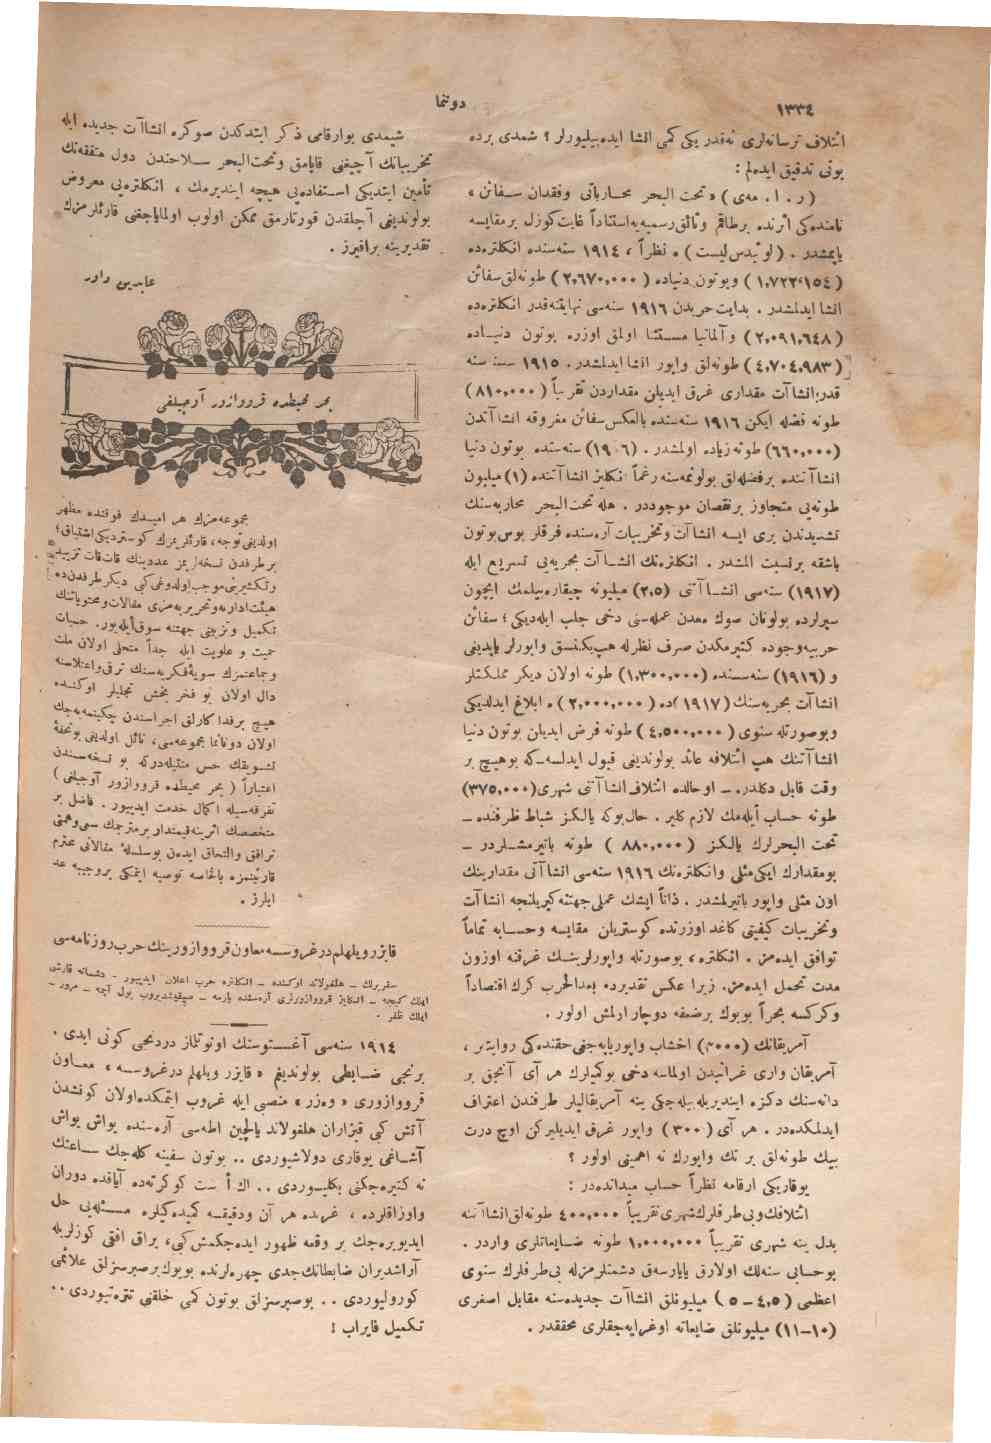 ١٣٣٤
دوننما
ائتلاف ترسانه‌لری نه‌قدر یکی کمی انشا ایده‌بیلیورلر ؟ شمدی برده
بونی تدقیق ایده‌لم :
( ر . ا . مه‌ی ) « تحت البحر محارباتی وفقدان سفائن »
نامنده‌کی اثرنده برطاقم وثائق رسمیه‌یه استناداً غایت کوزل برمقایسه
یاپمشدر . ( لوئیدس لیست ) ه نظراً ، ١٩١٤ سنه‌سنده انکلتره‌ده
( ١،٧٢٢،١٥٤ ) وبوتون دنیاده ( ٢,٦٧٠,٠٠٠ ) طونه‌لق سفائن
انشا ایدلمشدر . بدایت حربدن ١٩١٦ سنه‌سی نهایتنه‌قدر انکلتره‌ده
( ٢,٠٩١,٦٤٨ ) وآلمانیا مستثنا اولمق اوزره بوتون دنیاده
( ٤,٧٠٤,٩٨٣ ) طونه‌لق واپور انشا ایدلمشدر . ١٩١٥ سنه
قدر انشاآت مقداری غرق ایدیلن مقداردن تقریباً ( ٨١٠,٠٠٠ )
طونه فضله ایکن ١٩١٦ سنه‌سنده بالعکس سفائن مغروقه انشاآتدن
( ٦٦٠,٠٠٠ ) طونه زیاده اولمشدر . ( ١٩٠٦ ) سنه‌سنده بوتون دنیا
انشاآتنده برفضله‌لق بولونمه‌سنه رغماً انکلیز انشاآتنده (١) میلیون
طونه‌یی متجاوز برنقصان موجوددر . هله تحت البحر محاربه‌سنك
تشدیدندن بری ایسه انشاآت وتخریبات آره‌سنده فرقلر بوس بوتون
باشقه برنسبت المشدر . انکلتره‌نك انشاآت بحریه‌یی تسریع ایله
(١٩١٧) سنه‌سی انشاآتنی (٢,٥) میلیونه چیقاره‌بیلمك ایچون
سپرلرده بولونان صوك معدن عمله‌سنی دخی جلب ایله‌دیکی ؛ سفائن
حربیه وجوده کتیرمکدن صرف نظرله هپ یکنسق واپورلر یاپدیغی
و (١٩١٦) سنه‌سنده (١,٣٠٠,٠٠٠) طونه اولان دیکر مملکتلر
انشاآت بحریه‌سنك (١٩١٧)ده ( ٢,٠٠٠,٠٠٠ ) ه ابلاغ ایدلدیکی
وبوصورتله سنوی ( ٤,٥٠٠,٠٠٠ ) طونه فرض ایدیلن بوتون دنیا
انشاآتنك هپ ائتلافه عائد بولوندیغی قبول ایدلسه‌که بوهیچ بر
وقت قابل دکلدر. ـ اوحالده ائتلاف انشاآتنی شهری (٣٧٥,٠٠٠)
طونه حساب ایله‌مك لازم کلیر . حال بوکه یالکز شباط ظرفنده ـ
تحت البحرلرك یالکز ( ٨٨٠,٠٠٠ ) طونه باتیرمشلردر ـ
بومقدارك ایکی مثلی وانکلتره‌نك ١٩١٦ سنه‌سی انشاآتی مقدارینك
اون مثلی واپور باتیرلمشدر . ذاتاً ایشك عملی جهتنه کیریلنجه انشاآت
وتخریبات کیفیتی کاغد اوزرنده کوستریلن مقایسه وحسابه تماماً
توافق ایده‌مز . انکلتره ، بوصورتله واپورلرینك غرقنه اوزون
مدت تحمل ایده‌مز. زیرا عکس تقدیرده بعدالحرب کرك اقتصاداً
وکرکسه بحراً بویوك برضعفه دوچار اولمش اولور .
آمریقانك (٣٠٠٠) اخشاب واپور یاپه‌جغی حقنده‌کی روایتلر ،
آمریقان واری غرائبدن اولماسه دخی بوکمیلرك هر آی آنجق بر
دانه‌سنك دکزه ایندیریله‌بیله‌جکی ینه آمریقالیلر طرفندن اعتراف
ایدلمکده‌در . هر آی (٣٠٠) واپور غرق ایدیلیرکن اوچ درت
بیك طونه‌لق بر تك واپورك نه اهمیتی اولور ؟
یوقاریکی ارقامه نظراً حساب میدانده‌در :
ائتلافك وبی طرفلرك شهری تقریباً ٤٠٠,٠٠٠ طونه‌لق انشاآتنه
بدل ینه شهری تقریباً ١,٠٠٠,٠٠٠ طونه ضایعاتلری واردر .
بوحسابی سنه‌لك اولارق یاپارسه‌ق دشمنلرمزله بی طرفلرك سنوی
اعظمی ( ٤,٥ ـ ٥ ) میلیونلق انشاآت جدیده‌سنه مقابل اصغری
(١٠ـ١١) میلیونلق ضایعاته اوغرایه‌جقلری محققدر .
شیمدی بوارقامی ذکر ایتدکدن صوکره انشاآت جدیده ایله
تخریباتك آچیغی قاپامق وتحت البحر سلاحندن دول متفقه‌نك
تأمین ایتدیکی استفاده‌یی هیچه ایندیرمك ، انکلتره‌یی معروض
بولوندیغی آجلقدن قورتارمق ممکن اولوب اولمایاجغنی قارئلرمزك
تقدیرینه براقیرز .
عابدین داور
بحر محیطده قرووازور آوجیلغی
مجموعه‌مزك هر امیدك فوقنده مظهر
اولدیغی توجه ، قارئلریمزك کوستردیکی اشتیاق ؛
برطرفدن نسخه‌لریمز عددینك قات قات تزیید
وتکثیرینی موجب اولدوغی کبی دیکر طرفدن ده
هیئت اداره وتحریریه‌مزی مقالات ومحتویاتنك
تکمیل وتزیینی جهتنه سوق ایله‌یور. حسیات
حمیت و علویت ایله جداً متحلی اولان ملت
وجماعتمزك سویهٔ فکریه‌سنك ترقی واعتلاسنه
دال اولان بو فخر بخش تجلیلر اوکنده
هیچ برفداکارلق اجراسندن چکینمه‌یه‌جك
اولان دوننما مجموعه‌سی، نائل اولدیغی بوتحفهٔ
تشویقك حس متقیله‌درکه بو نسخه‌سندن
اعتباراً ( بحر محیطده قرووازور آوجیلغی )
تفرقه‌سیله اکمال خدمت ایدییور . فاضل بر
متخصصك اثر ینه قیمتدار برمترجمك سعی وهمتی
ترافق والتحاق ایدن بوسلسلهٔ مقالاتی محترم
قارئینمزه بالخاصه توصیه ایتمکی بروجیبه عد
ایلرز .
قایزر ویلهلم درغروسه معاون قرووازورینك حرب روزنامه‌سی
سفربرلك ـ هلغولاند اوکنده ـ انکلتره حرب اعلان ایدییور ـ دشمانه قارشی
ایلك کیجه ـ انکلیز قرووازورلری آره‌سنده یارمه ـ یول آچمه ـ مرور ـ
ایلك ظفر .
١٩١٤ سنه‌سی آغستوسنك اوتوتلماز دردنجی کونی ایدی .
برنجی ضابطی بولوندیغم « قایزر ویلهلم درغروسه » معاون
قرووازوری « وه‌زر » منصبی ایله غروب ایتمکده‌اولان کونشدن
آتش کبی قیزاران هلغولاند یالچین اطه‌سی آره‌سنده یواش یواش
آشاغی یوقاری دولاشیوردی .. بوتون سفینه کله‌جك ساعتك
نه کتیره‌جکنی بکلیوردی .. اك أست کوکرته‌ده آیاقده دوران
واوزاقلرده ، غربده هر آن ودقیقه کمیده‌کیلره مسئله‌یی حل
ایدیویره‌جك بر وقعه ظهور ایده‌جکمش کبی، براق افقی کوزلریله
آراشدیران ضابطانك جدی چهره‌لرنده بویوك برصبرسزلق علائمی
کورولیوردی .. بوصبرسزلق بوتون کمی خلقنی تتره‌تیوردی ..
تکمیل فایراب !